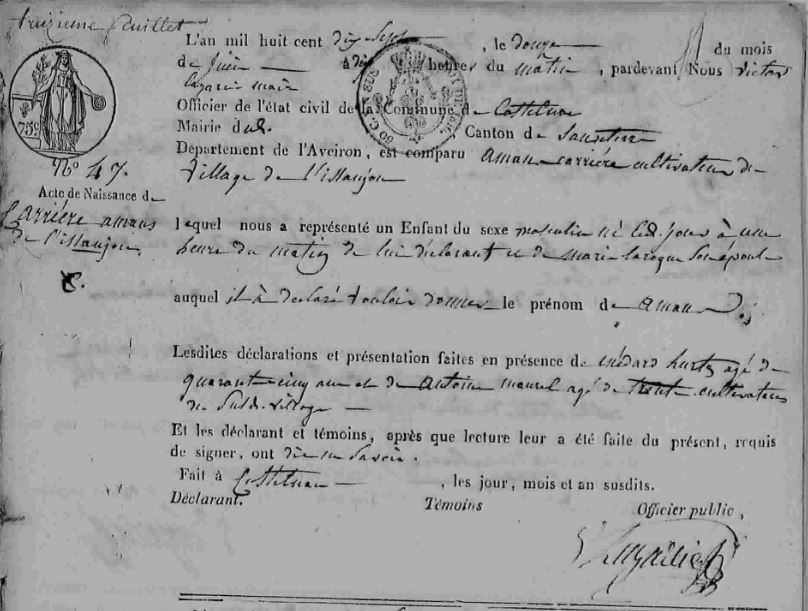 treizieme feuillet
L'an mil huit cent dix Sept, le douze du mois
de Juin à dix heures du matin, pardevant Nous victor
Officier de l'état civil de la Commune de Castelnau
Mairie dud. Canton de Sauveterre
Département de l'Aveiron, est comparu Aman carriére cultivateur de
village de l'issanjou
75c
N° 47.
Acte de Naissance de
Carriére amans
de l'issanjou
lequel nous a représenté un Enfant du sexe masculin né led. jour à une
heure du matin de lui déclarant et de marie laroque son épouse
auquel il à declaré vouloir donner le prénom de Aman
Lesdites déclarations et présentation faites en présence de médard agé de
quarante cinq ans et de Antoine maurel agé de trente cultivateurs
de Susd. village
Et les déclarant et témoins, après que lecture leur a été faite du présent, requis
de signer, ont dit ne Savoir.
Fait à Castelnau, les jour, mois et an susdits.
Déclarant. Témoins Officier public,